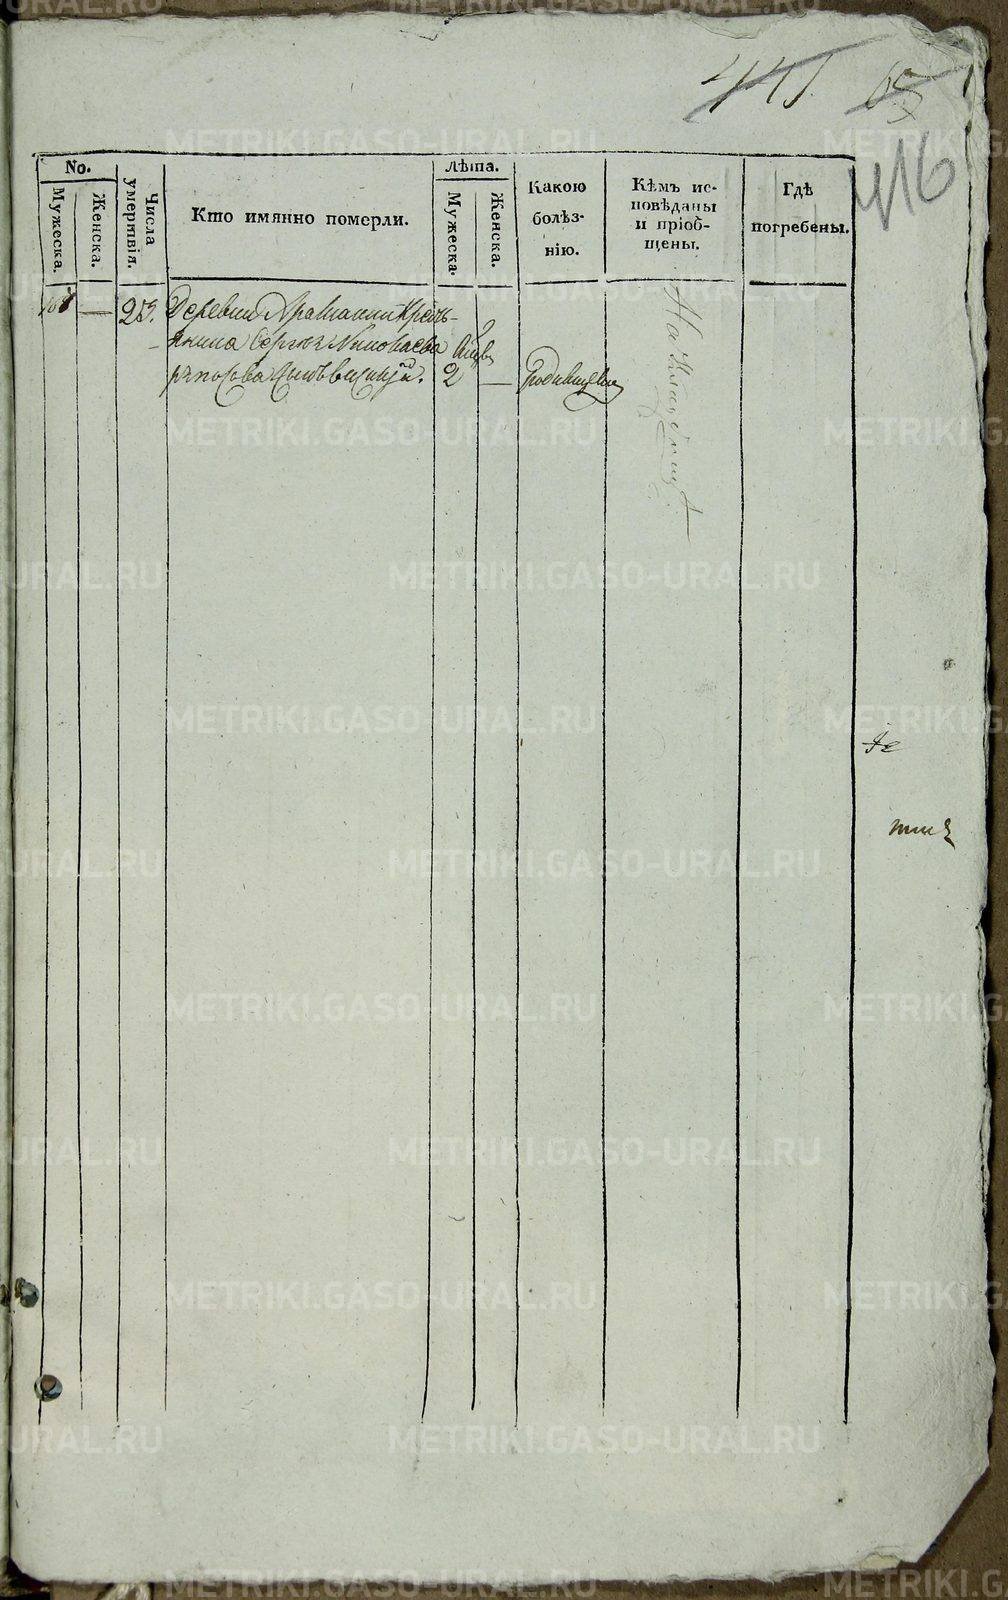 441. 65
416
No.
Мужеска.
Женска.
Числа умертвія.
Кто имянно померли.
Лѣта.
Мужеска.
Женска.
Какою
болѣз-
нію.
Кѣмъ ис-
повѣданы
и пріоб-
щены.
Гдѣ
погребены.
— 25г.
Деревни Кресть-
янина Сергѣя
сынъ
2 — Родимцемъ
На Кладбищѣ
METRIKI.GASO-URAL.RU